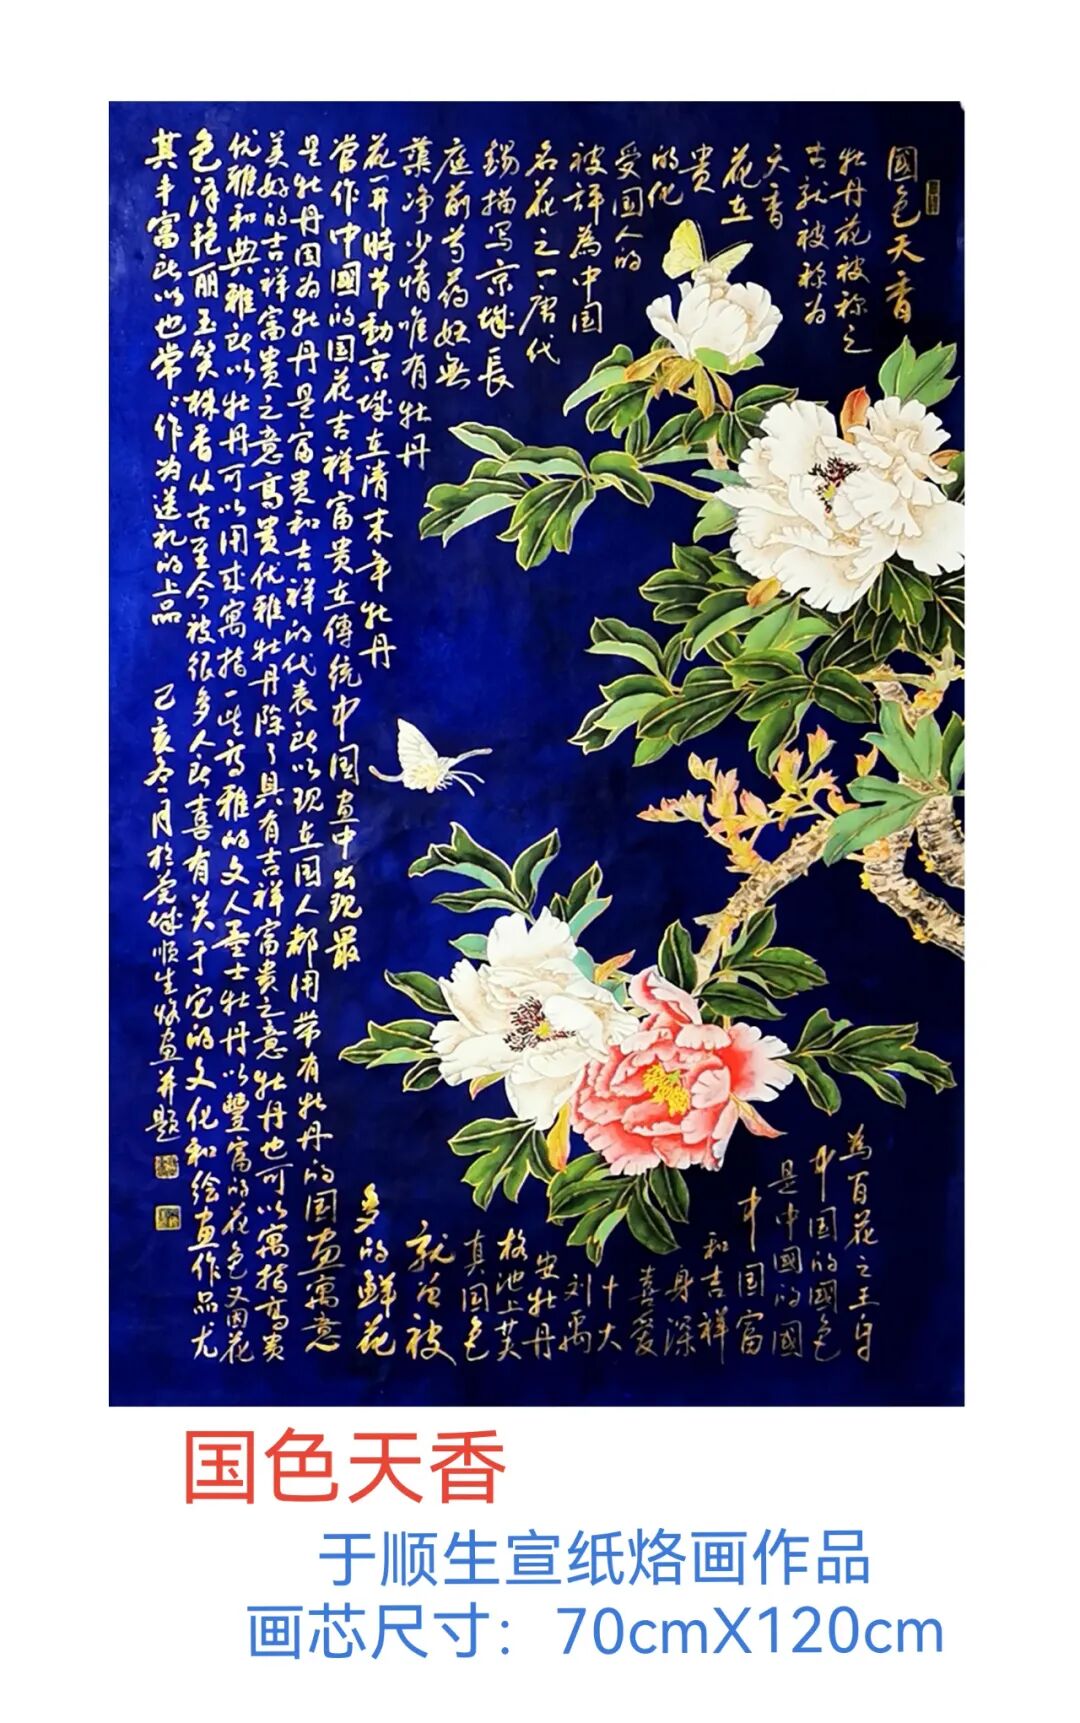 國色天香
牡丹花被称之为百花之王自
古就被称为中国的國色
天香是中國的國
花在中国富
贵和吉祥
的化身深
受国人的喜爱
被評為中国十大
名花之一唐代刘禹
錫描写京城長安牡丹
庭前芍药妖無格池上芙
蕖净少情唯有牡丹真国色
花开時节動京城在清末年牡丹就曾被
當作中國的国花吉祥富贵在傳统中国画中出现最多的鲜花
是牡丹因为牡丹是富贵和吉祥的代表所以现在国人都用带有牡丹的国画寓意
美好的吉祥富贵之意高贵优雅牡丹除了具有吉祥富贵之意牡丹也可以寓指高贵
优雅和典雅所以牡丹可以用来寓指一些高雅的文人墨士牡丹以豐富的花色又因花
色泽艳丽玉笑株香从古至今被很多人所喜有关于它的文化和绘画作品尤
其丰富所以也常々作为送礼的上品 己亥冬月於莞城顺生烙画并题
国色天香
于顺生宣纸烙画作品
画芯尺寸：70cmX120cm